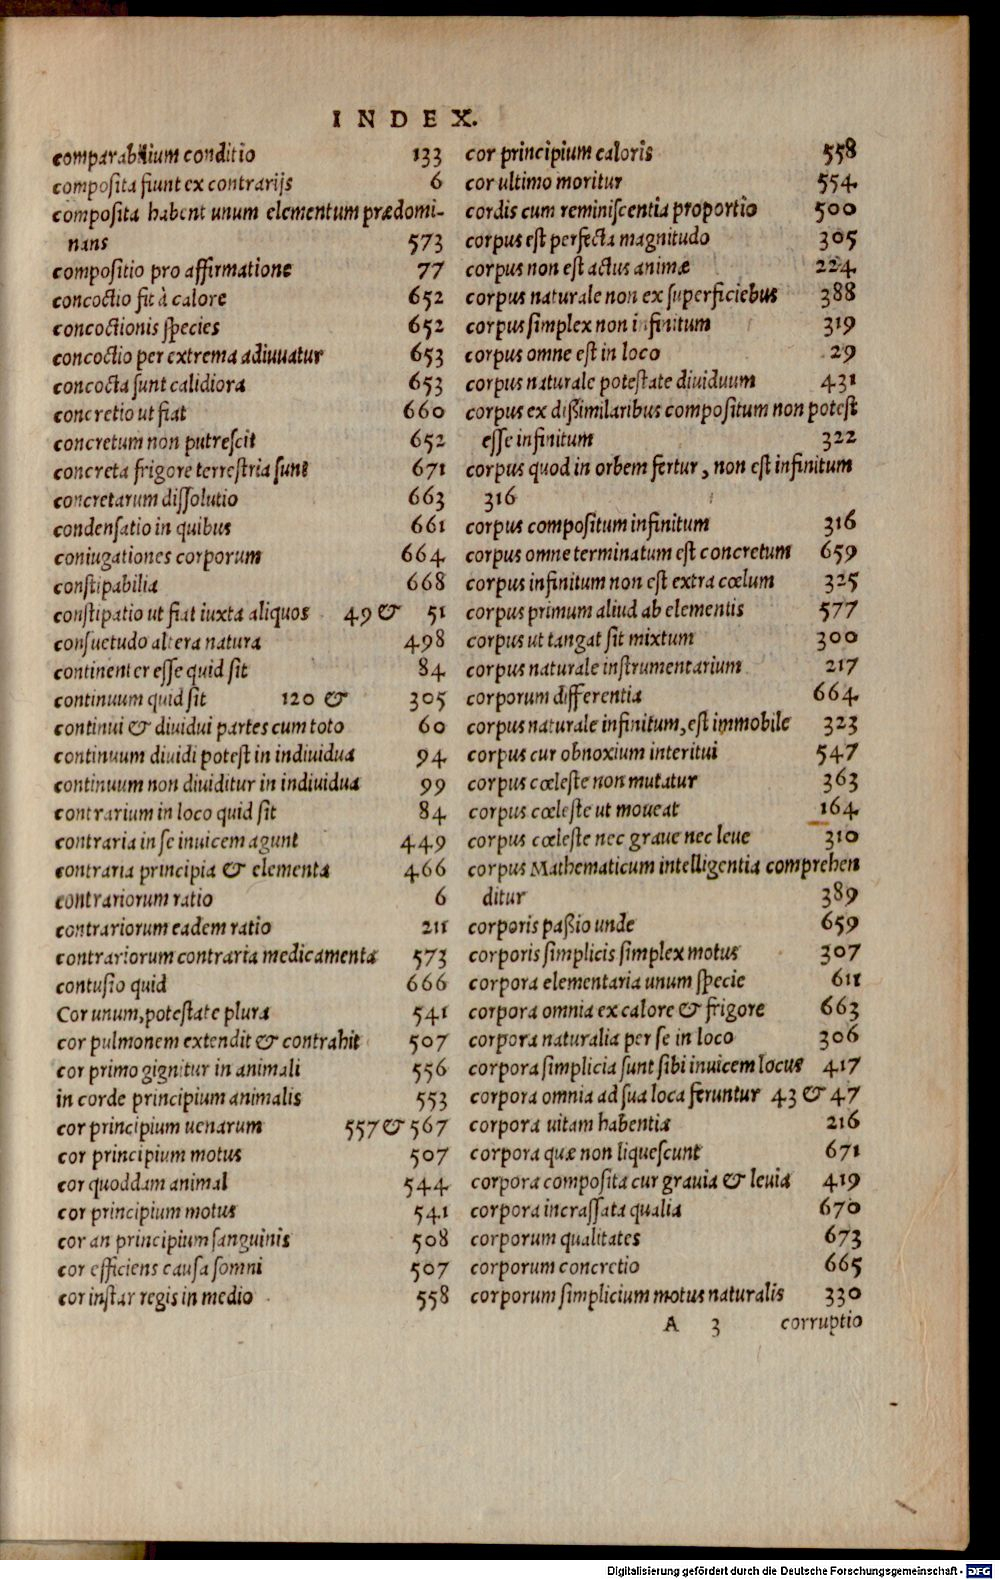 INDEX.
comparabilium conditio 133
composita fiunt ex contrarijs 6
composita habent unum elementum prædomi-
nans 573
compositio pro affirmatione 77
concoctio fit à calore 652
concoctionis species 652
concoctio per extrema adiuuatur 653
concocta sunt calidiora 653
concretio ut fiat 660
concretum non putrescit 652
concreta frigore terrestria sunt 671
concretarum dissolutio 663
condensatio in quibus 661
coniugationes corporum 664
constipabilia 668
constipatio ut fiat iuxta aliquos 49 & 51
consuetudo altera natura 498
continenter esse quid sit 84
continuum quid sit 120 & 305
continui & diuidui partes cum toto 60
continuum diuidi potest in indiuidua 94
continuum non diuiditur in indiuidua 99
contrarium in loco quid sit 84
contraria in se inuicem agunt 449
contraria principia & elementa 466
contrariorum ratio 6
contrariorum eadem ratio 211
contrariorum contraria medicamenta 573
contusio quid 666
Cor unum, potestate plura 541
cor pulmonem extendit & contrahit 507
cor primo gignitur in animali 556
in corde principium animalis 553
cor principium uenarum 557 & 567
cor principium motus 507
cor quoddam animal 544
cor principium motus 541
cor an principium sanguinis 508
cor efficiens causa somni 507
cor instar regis in medio 558
cor principium caloris 558
cor ultimo moritur 554
cordis cum reminiscentia proportio 500
corpus est perfecta magnitudo 305
corpus non est actus animæ 224
corpus naturale non ex superficiebus 388
corpus simplex non infinitum 319
corpus omne est in loco 29
corpus naturale potestate diuiduum 431
corpus ex dißimilaribus compositum non potest
esse infinitum 322
corpus quod in orbem fertur, non est infinitum
316
corpus compositum infinitum 316
corpus omne terminatum est concretum 659
corpus infinitum non est extra cœlum 325
corpus primum aliud ab elementis 577
corpus ut tangat sit mixtum 300
corpus naturale instrumentarium 217
corporum differentia 664
corpus naturale infinitum, est immobile 323
corpus cur obnoxium interitui 547
corpus cœleste non mutatur 363
corpus cœleste ut moueat 164
corpus cœleste nec graue nec leue 310
corpus Mathematicum intelligentia comprehen
ditur 389
corporis paßio unde 659
corporis simplicis simplex motus 307
corpora elementaria unum specie 611
corpora omnia ex calore & frigore 663
corpora naturalia per se in loco 306
corpora simplicia sunt sibi inuicem locus 417
corpora omnia ad sua loca feruntur 43 & 47
corpora uitam habentia 216
corpora quæ non liquescunt 671
corpora composita cur grauia & leuia 419
corpora incrassata qualia 670
corporum qualitates 673
corporum concretio 665
corporum simplicium motus naturalis 330
A 3 corruptio
Digitalisierung gefördert durch die Deutsche Forschungsgemeinschaft - DFG